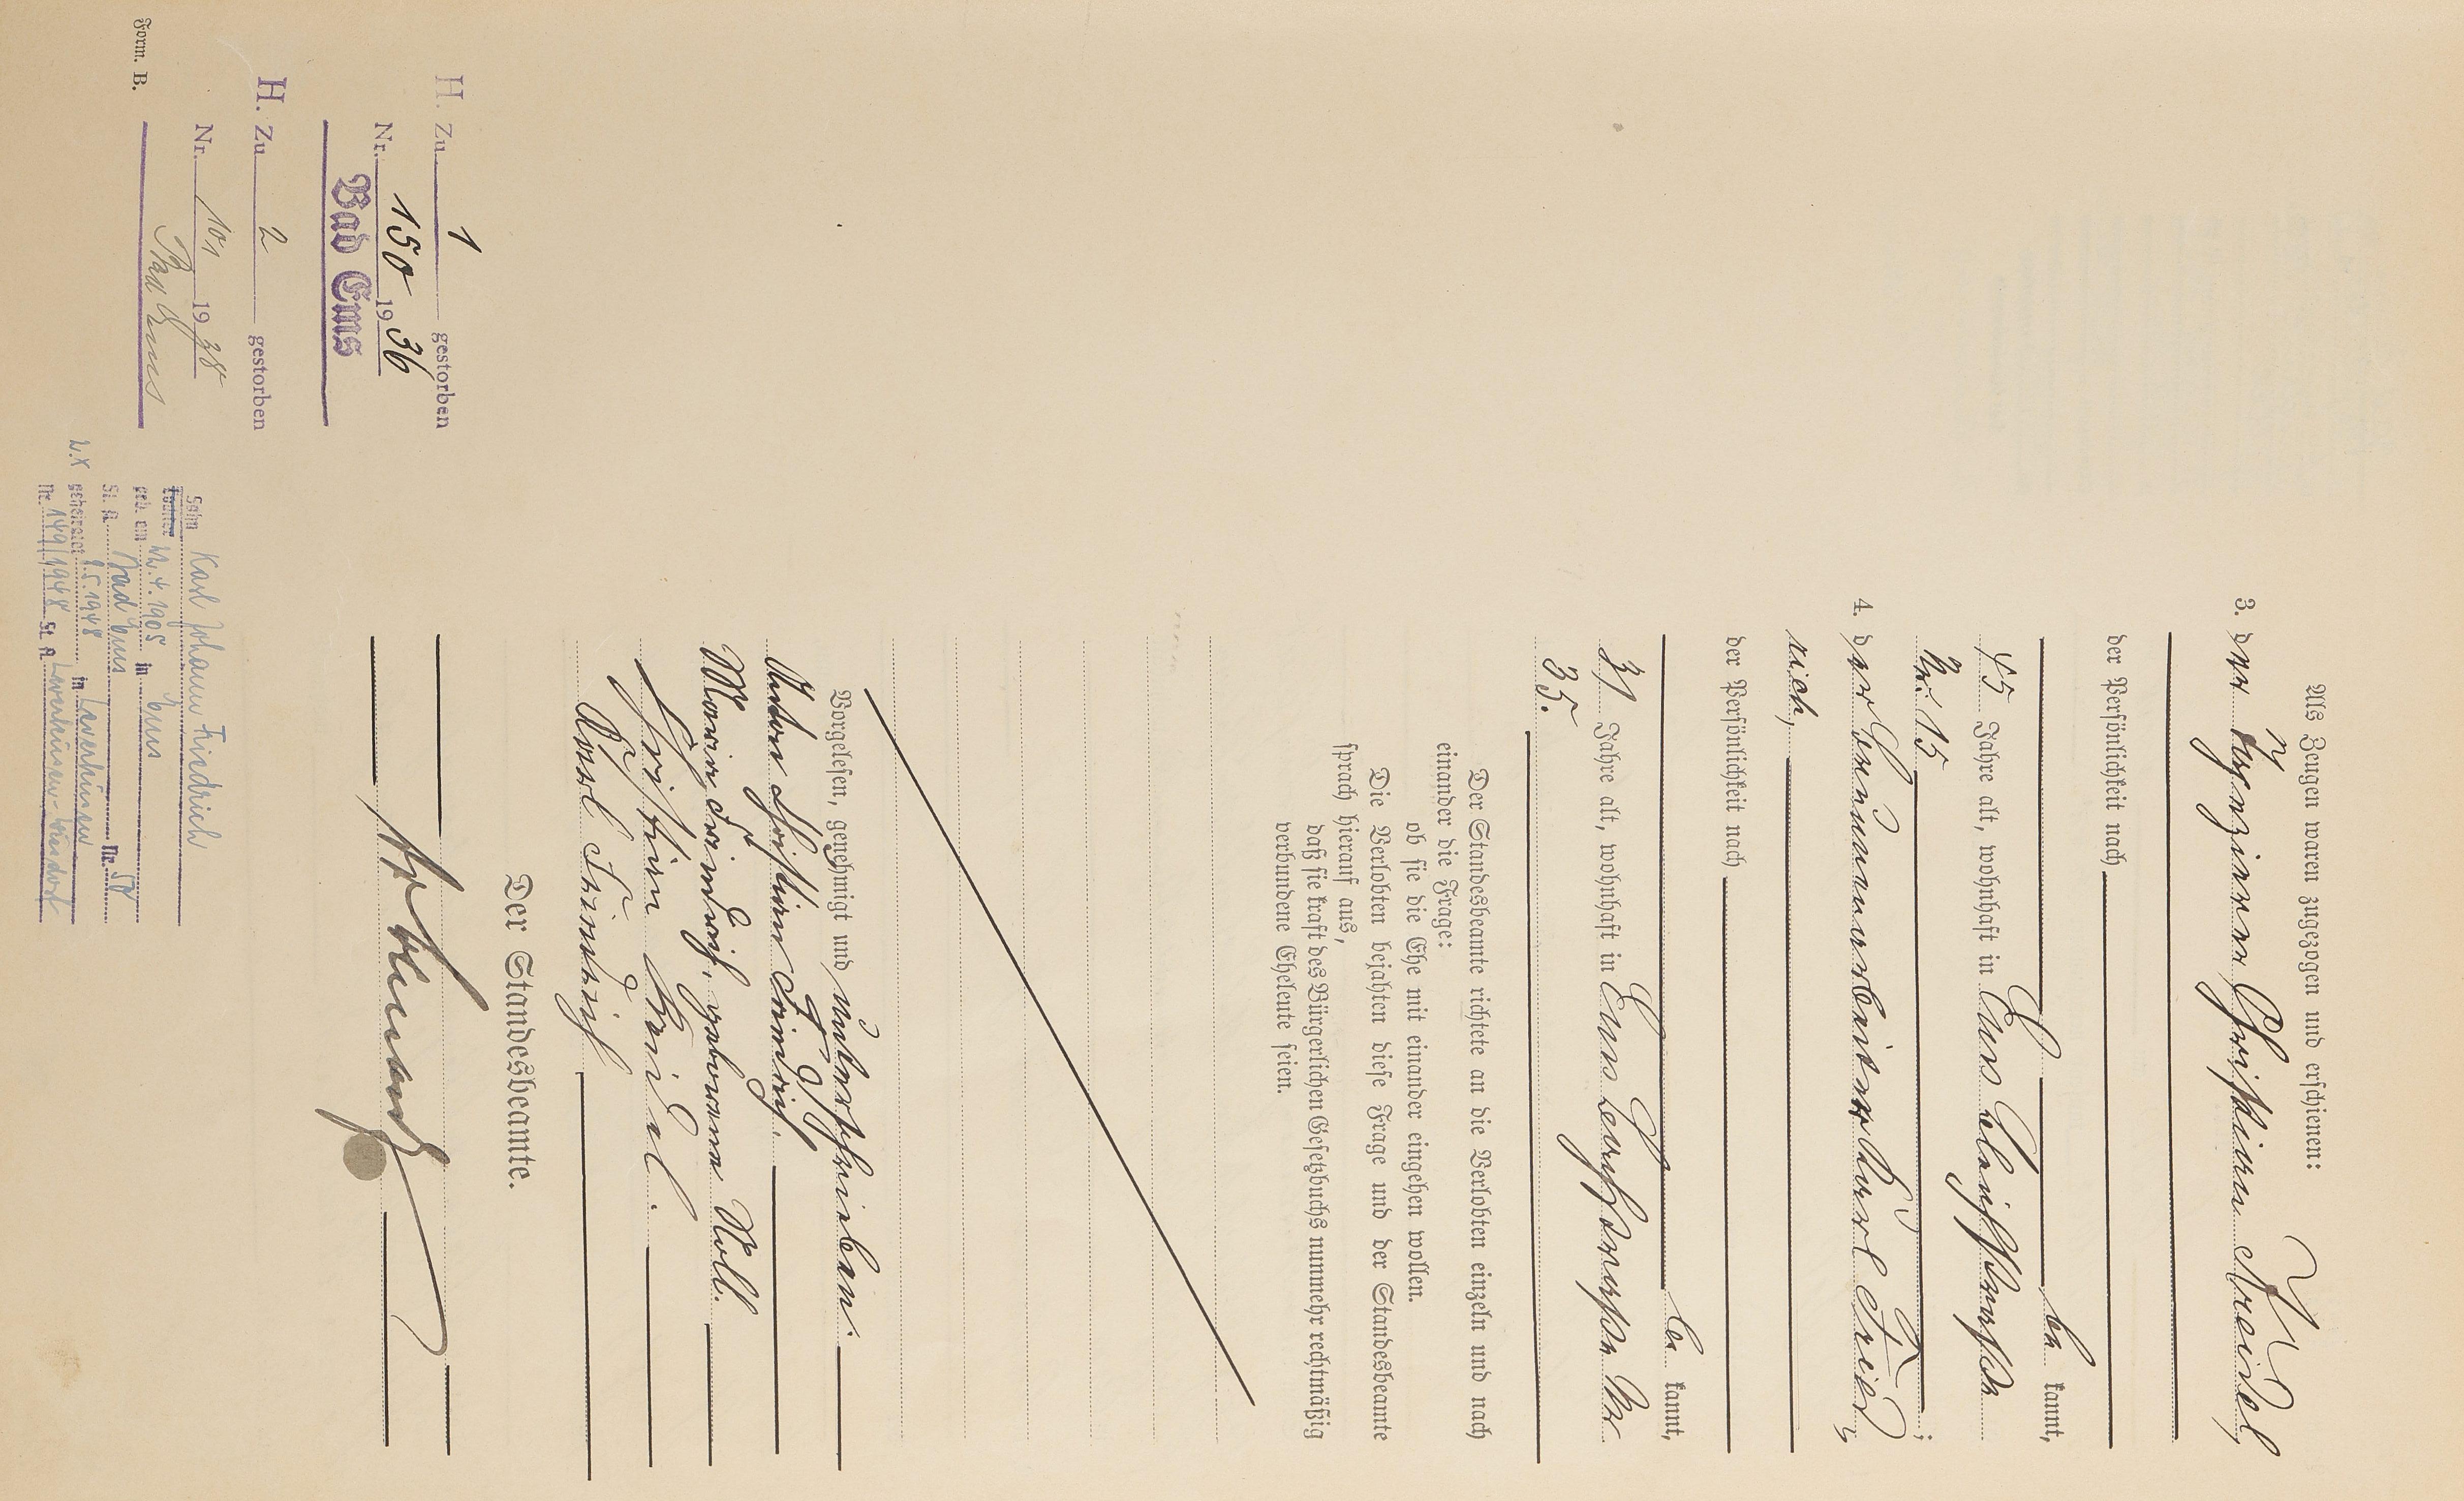 Als Zeugen waren zugezogen und erschienen:
3. der Tapezierer Christian Kreidel,
der Persönlichkeit nach
be kannt,
45 Jahre alt, wohnhaft in Ems Bleichstraße
Nr. 15 ;
4. der Brunnenarbeiter Karl Fried¬
rich,
der Persönlichkeit nach
be kannt,
31 Jahre alt, wohnhaft in Ems Lahnstraße Nr.
35.
Der Standesbeamte richtete an die Verlobten einzeln und nach
einander die Frage:
ob sie die Ehe mit einander eingehen wollen.
Die Verlobten bejahten diese Frage und der Standesbeamte
sprach hierauf aus,
daß sie kraft des Bürgerlichen Gesetzbuchs nunmehr rechtmäßig
verbundene Eheleute seien.
Vorgelesen, genehmigt und unterschrieben.
Anton Christian Friedrich.
Maria Friedrich, geborene Noll.
Christian Kreidel.
Karl Friedrich
Der Standesbeamte.
H. Zu 1 gestorben
Nr. 150 1936
Bad Ems
H. Zu 2 gestorben
Nr. 101 1938
Bad Ems
Form. B.
Sohn Karl Johann Friedrich
Tochter
geb. am 24.4.1905 in Ems
St. A. Bad Ems Nr. 58
geheiratet 8.5.1948 in Leverkusen
Nr. 149/1948 St. A. Leverkusen-Wiesdorf